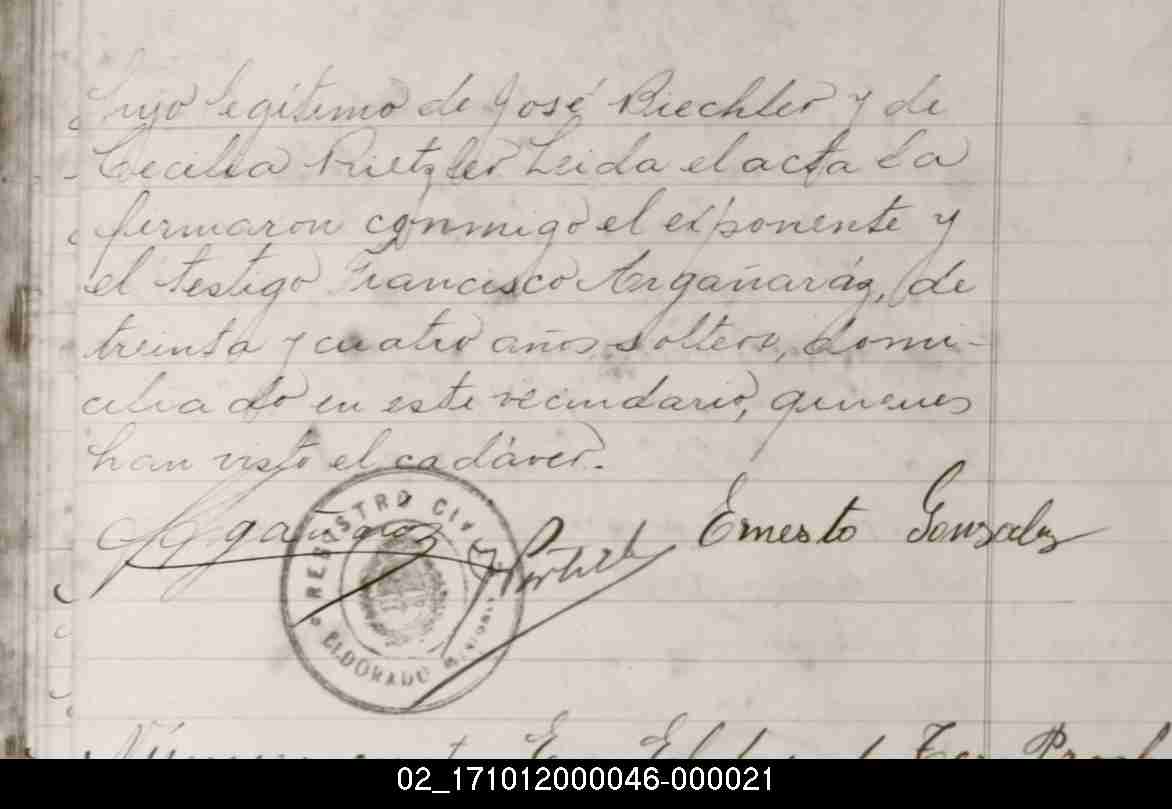 hijo legítimo de José Biechler y de
Cecilia Rietzler Leida el acta la
firmaron conmigo el exponente y
el testigo Francisco Argañaráz, de
treinta y cuatro años, soltero, domi-
ciliado en este vecindario, quienes
han visto el cadáver.
Argañaraz
Ernesto Gonzalez
REGISTRO CIVIL
ELDORADO MISIONES
02_171012000046-000021